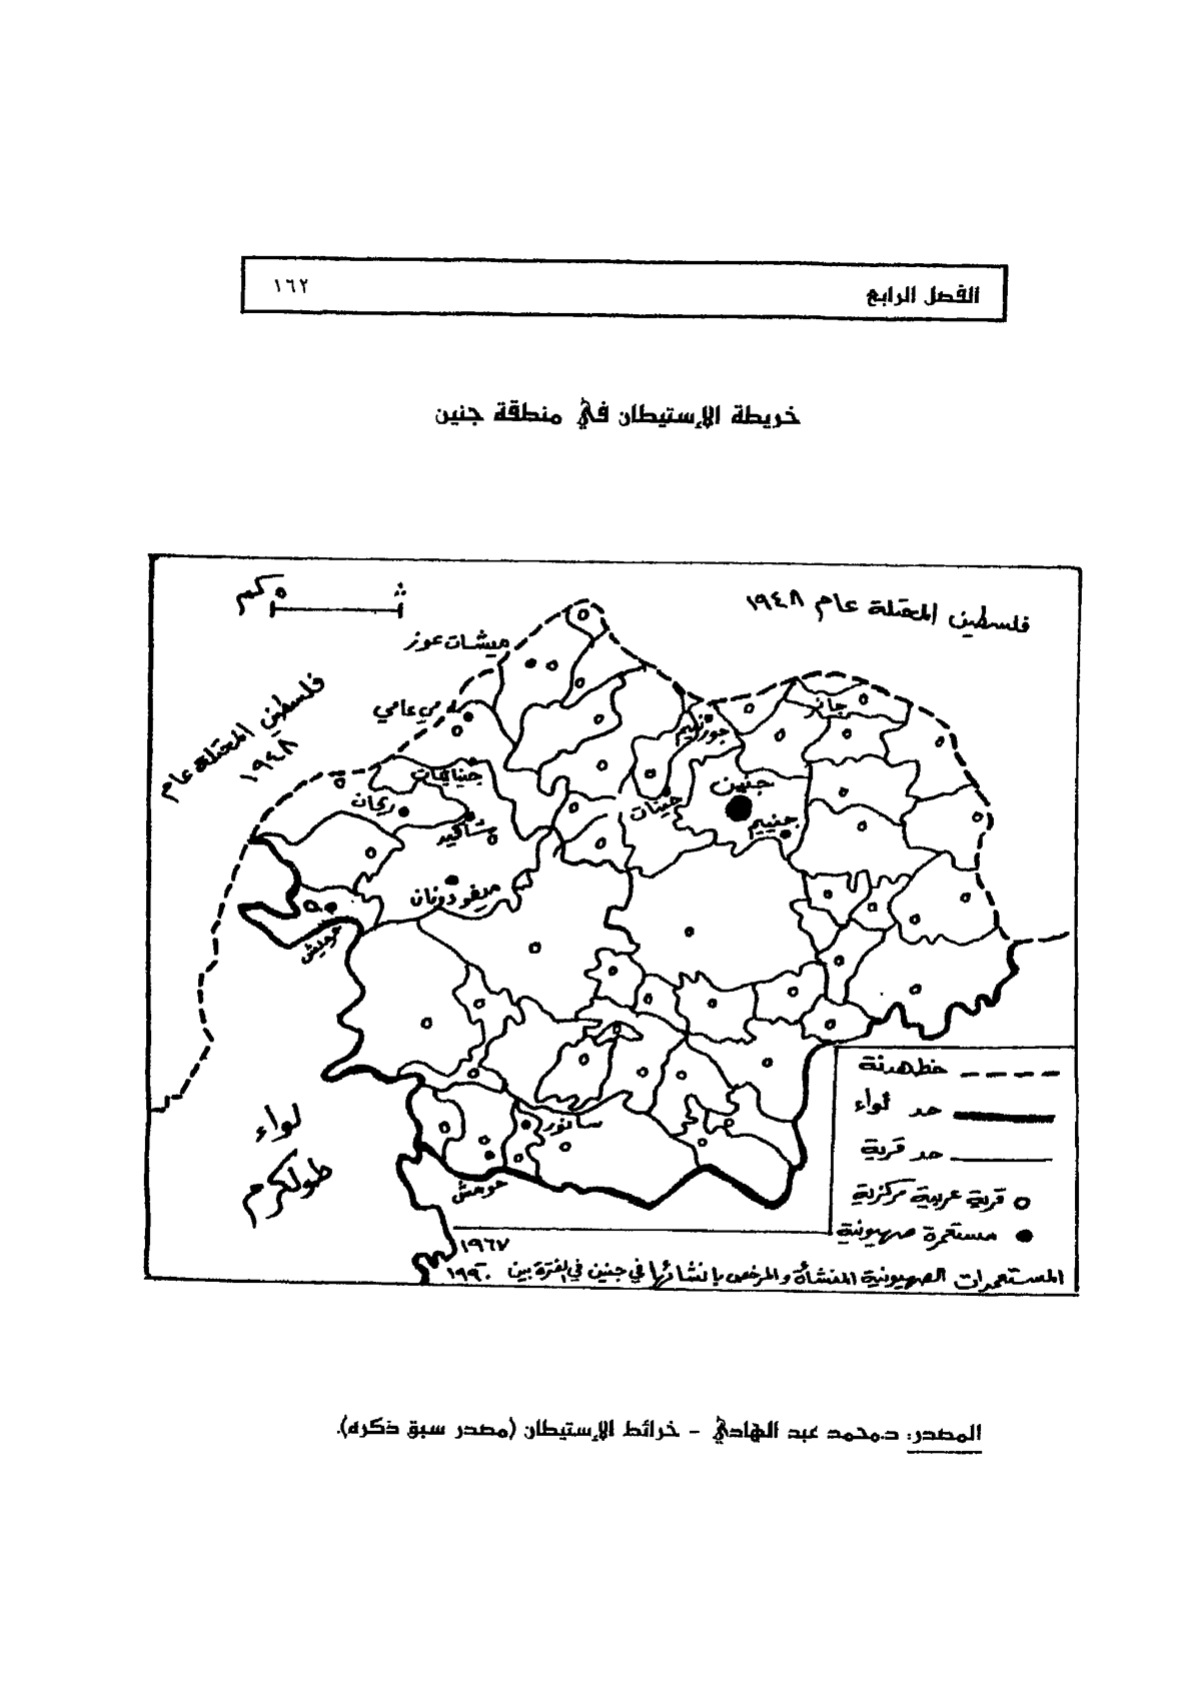 الفصل الرابع
١٦٢
خريطة الإستيطان في منطقة جنين
فلسطين المحتلة عام ١٩٤٨
٥ كم
ميشات عوز
مي عامي
فلسطين المحتلة عام
١٩٤٨
جانر
جوزليم
حنانيت
ريحان
جنين
حينات
جنيم
شاكيد
ميفودوثان
حرميش
سانور
حومش
لواء
طولكرم
خط هدنة
حد لواء
حد قرية
قرية عربية مركزية
مستعمرة صهيونية
المستعمرات الصهيونية المنشأة والمرخص بإنشائها في جنين في الفترة بين ١٩٦٧
١٩٩٠
المصدر: د.محمد عبد الهادي - خرائط الإستيطان (مصدر سبق ذكره).